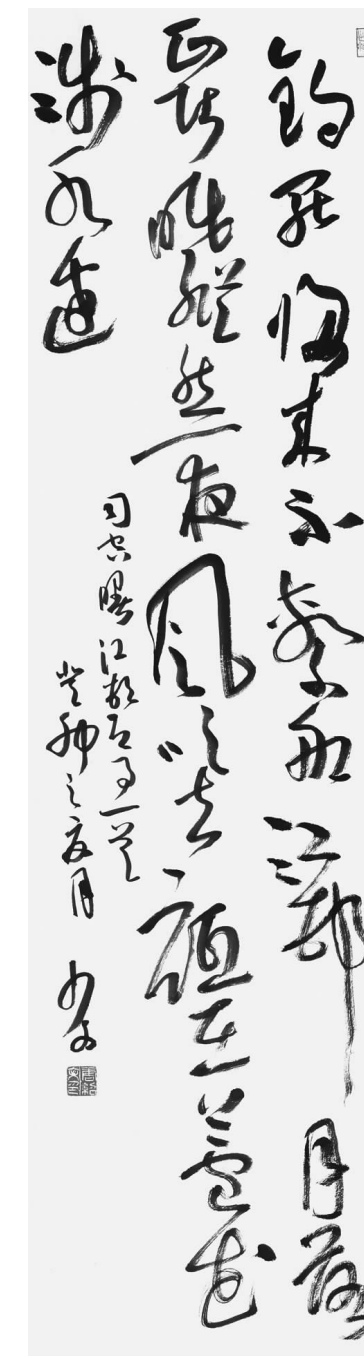 釣罷歸來不繫船江邨月落
正堪眠縱然一夜風吹去祇在蘆花
淺水邊
司空曙江邨即事一首
癸卯之夏月